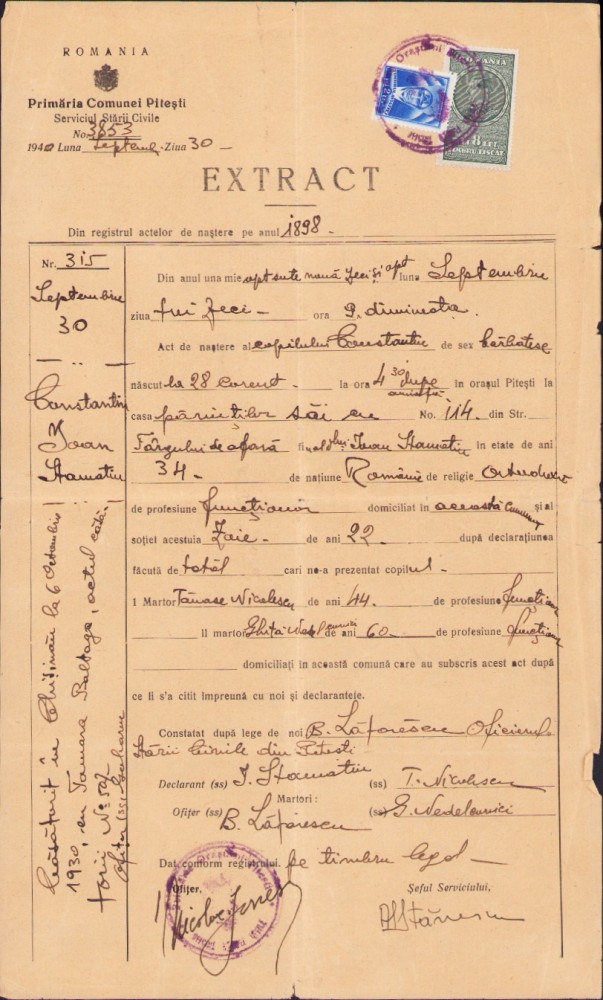 ROMANIA
Primăria Comunei Pitești
Serviciul Stării Civile
No. 3853
1940 Luna Septemv. Ziua 30 -
ROMANIA
8 LEI
TIMBRU FISCAL
EXTRACT
Din registrul actelor de naștere pe anul 1898 -
Nr. 315
Septembrie
30
Constantin
Ioan
Stamatiu
Căsătorit în Chișinău la 6 Octombrie
1930, cu Tamara Baltaga, actul căsă-
torii No
Ofițer (ss)
Din anul una mie opt sute nouă zeci și opt luna Septembrie
ziua trei zeci - ora 9 dimineața.
Act de naștere al copilului Constantin de sex bărbătesc
născut la 28 corent - la ora 4 30 dupe amiază in orașul Pitești la
casa părinților săi cu No. 114. din Str.
Târgul de afară fiu al lui Ioan Stamatiu în etate de ani
34 - de națiune Română de religie Ortodoxă
de profesiune funcționar domiciliat in această Comună și al
soției acestuia Zoie - de ani 22 după declarațiunea
făcută de tatăl cari ne-a prezentat copilul -
I Martor Tănase Nicolescu de ani 44. de profesiune funcționar
II martor Ghiță de ani 60 - de profesiune funcționar
domiciliați in această comună care au subscris acest act după
ce li s'a citit împreună cu noi și declarantele.
Constatat după lege de noi B. Oficierul
Stării Civile din Pitești
Declarant (ss) I. Stamatiu (ss) T. Nicolescu
Martori :
Ofițer (ss) B. (ss) G. Nedelcovici
Dat conform registrului. pe timbru legal -
Ofițer,
Șeful Serviciului,